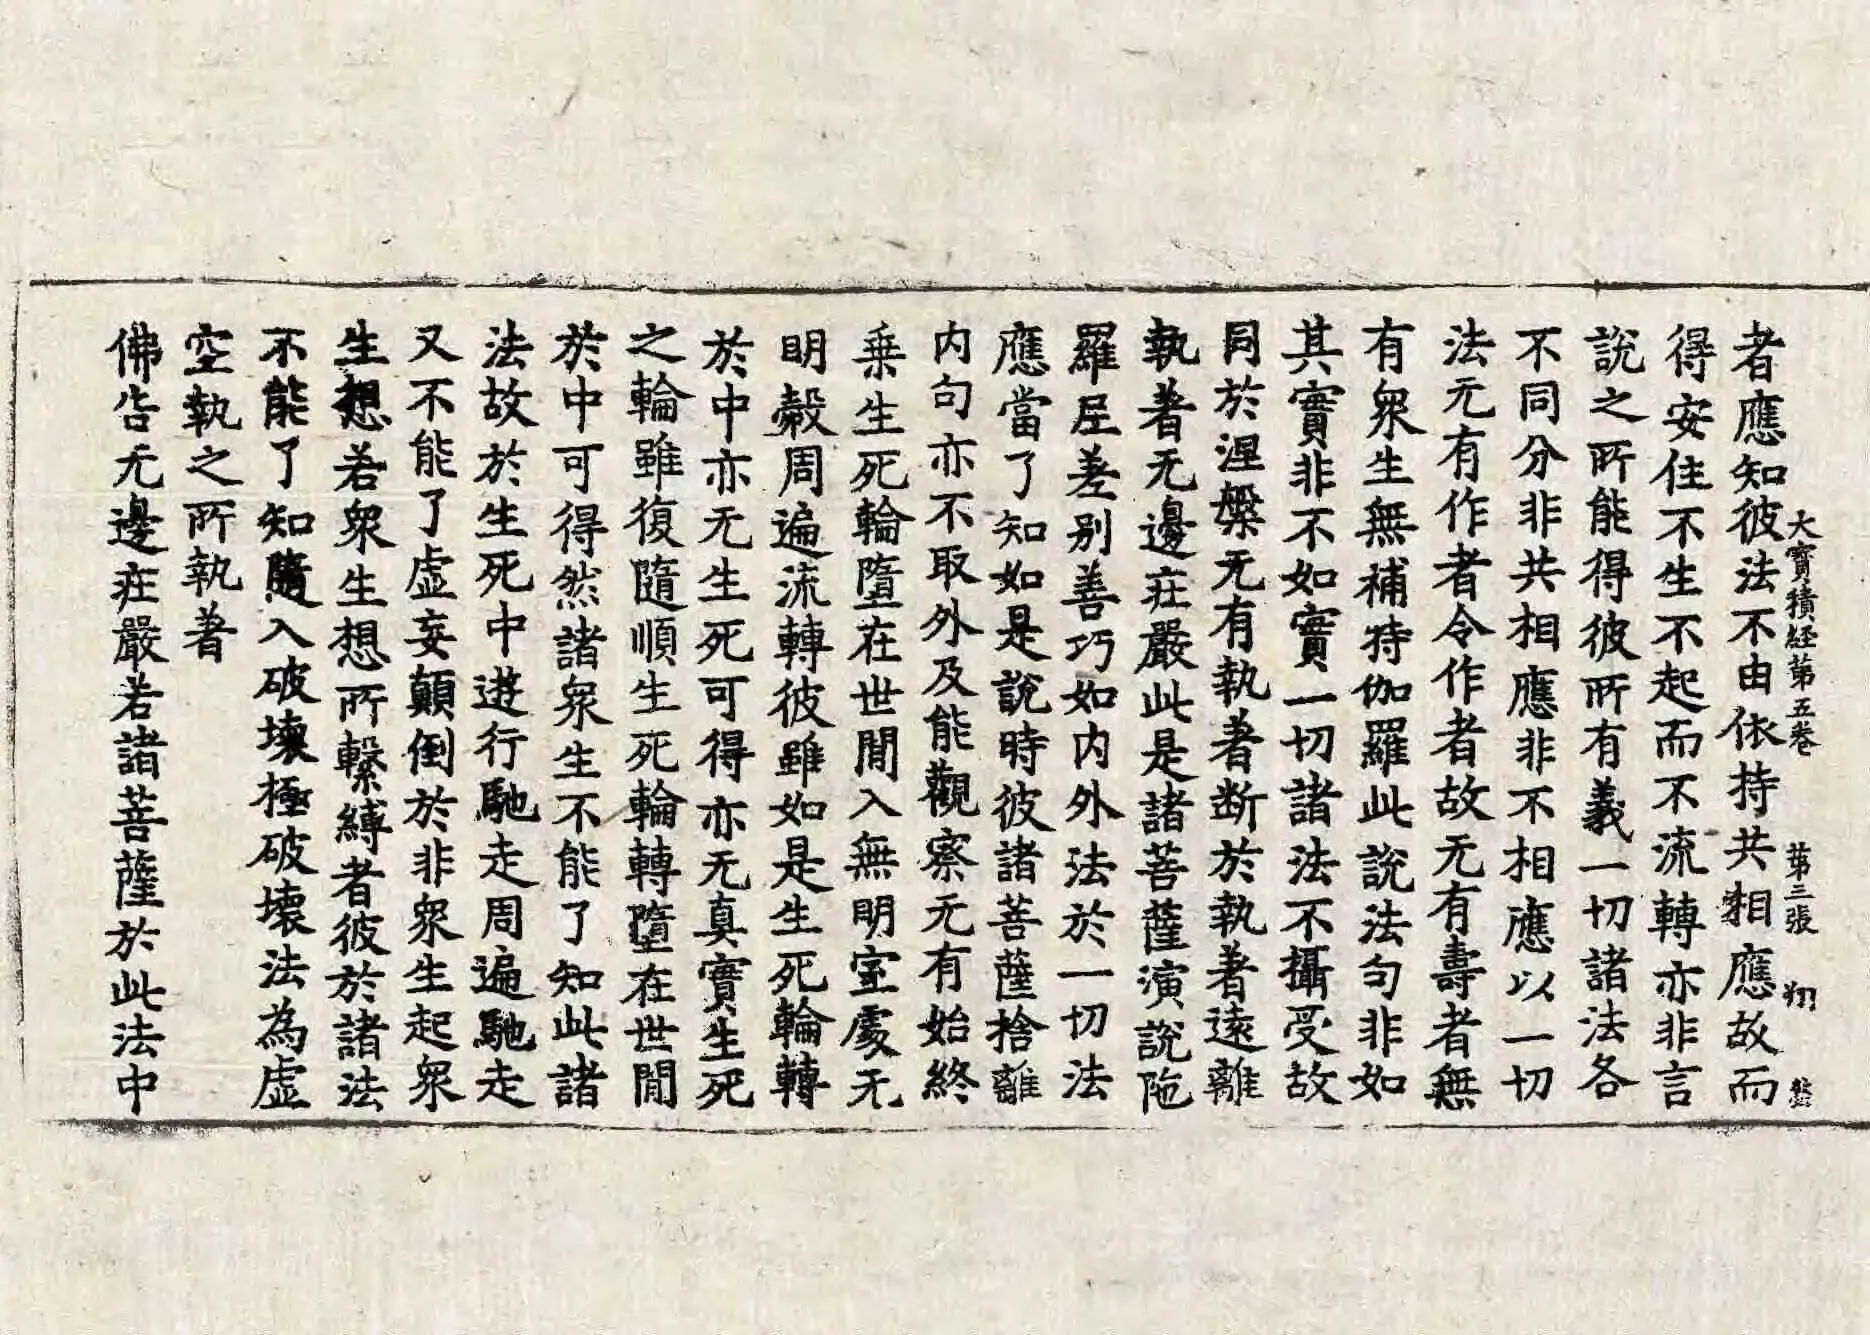 大寶積経苐五卷 苐三張 翔
者應知彼法不由依持共相應故而
得安住不生不起而不流轉亦非言
說之所能得彼所有義一切諸法各
不同分非共相應非不相應以一切
法无有作者令作者故无有壽者無
有衆生無補特伽羅此說法句非如
其實非不如實一切諸法不攝受故
同於涅槃无有執著斷於執著遠離
執著无邊庄嚴此是諸菩薩演說陁
羅尼差别善巧如内外法於一切法
應當了知如是說時彼諸菩薩捨離
内句亦不取外及能觀察无有始終
乗生死輪墮在世間入無明室處无
明㲉周遍流轉彼雖如是生死輪轉
於中亦无生死可得亦无真實生死
之輪雖復隨順生死輪轉墮在世間
於中可得然諸衆生不能了知此諸
法故於生死中遊行馳走周遍馳走
又不能了虛妄顛倒於非衆生起衆
生想若衆生想所繫縛者彼於諸法
不能了知隨入破壞極破壞法為虛
空執之所執著
佛告无邊庄嚴若諸菩薩於此法中